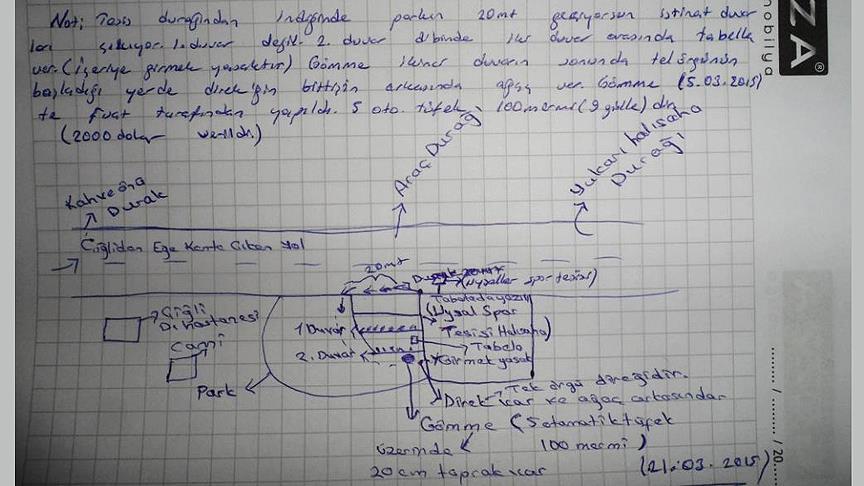 Not: Tesis durağından indiğinde parkın 20mt geçiyorsun istinat duvar
ları çıkıyor. 1. duvar değil. 2. duvar dibinde iki duvar arasında tabella
var. (içeriye girmek yasaktır) Gömme ikinci duvarın sonunda tel örgünün
başladığı yerde direğin bittiğin arkasında ağaç var. Gömme (5.03.2015)
te Fuat tarafından yapıldı. 5 oto. tüfek, 100 mermi (9 gülle) dir
(2000 dolar verildi.)
ZA®
mobilya
Kahveönü
Durak
Araç Durağ
Yukarı halısaha
Durağı
Çiğliden Ege Kente Çıkan Yol
20mt
Durak
(Uysallar spor tesisi)
Tabeladayazılı
(Uysal Spor
Tesisi Halısaha)
1. Duvar
Tabela
2. Duvar
Girmek yasak
Çiğli
Di hastanesi
Cami
Park
Tek örgü direğidir.
Direk var ve ağaç arkasından
Gömme (5 otamatik tüfek
100 mermi)
üzerinde
20 cm toprak var
(21.03.2015)
....... / ....... / 20.....